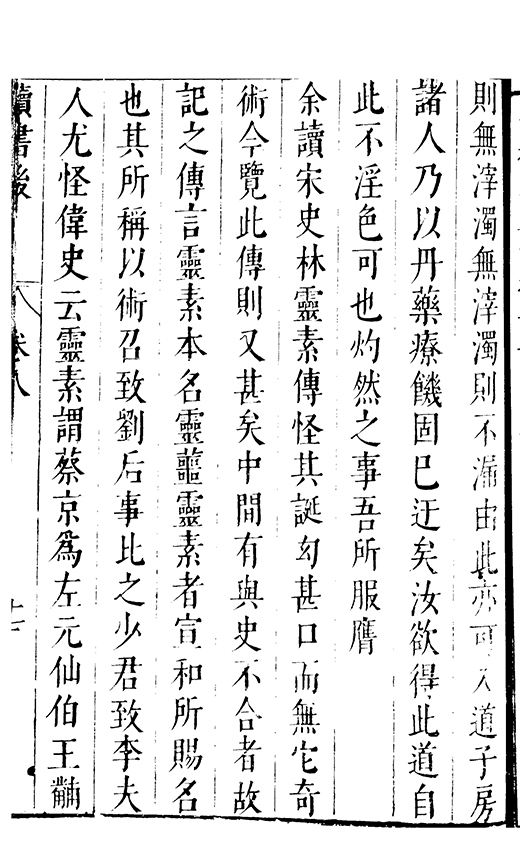 則無滓濁無滓濁則不漏由此亦可入道子房
諸人乃以丹藥療饑固已迂矣汝欲得此道自
此不淫色可也灼然之事吾所服膺
余讀宋史林靈素傳怪其誕幻甚口而無它奇
術今覽此傳則又甚矣中間有與史不合者故
記之傳言靈素本名靈蘁靈素者宣和所賜名
也其所稱以術召致劉后事比之少君致李夫
人尤怪偉史云靈素謂蔡京為左元仙伯王黼
讀書後 卷八